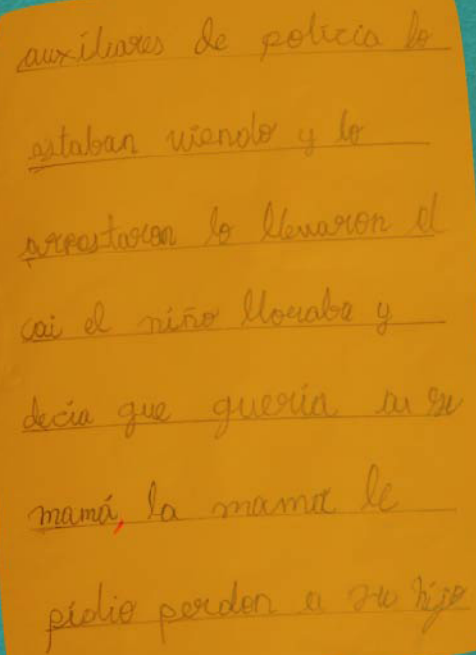 auxiliares de policia lo
estaban viendo y lo
arrastaron lo llevaron al
cai el niño lloraba y
decia que queria a su
mamá, la mama le
pidio perdon a su hijo